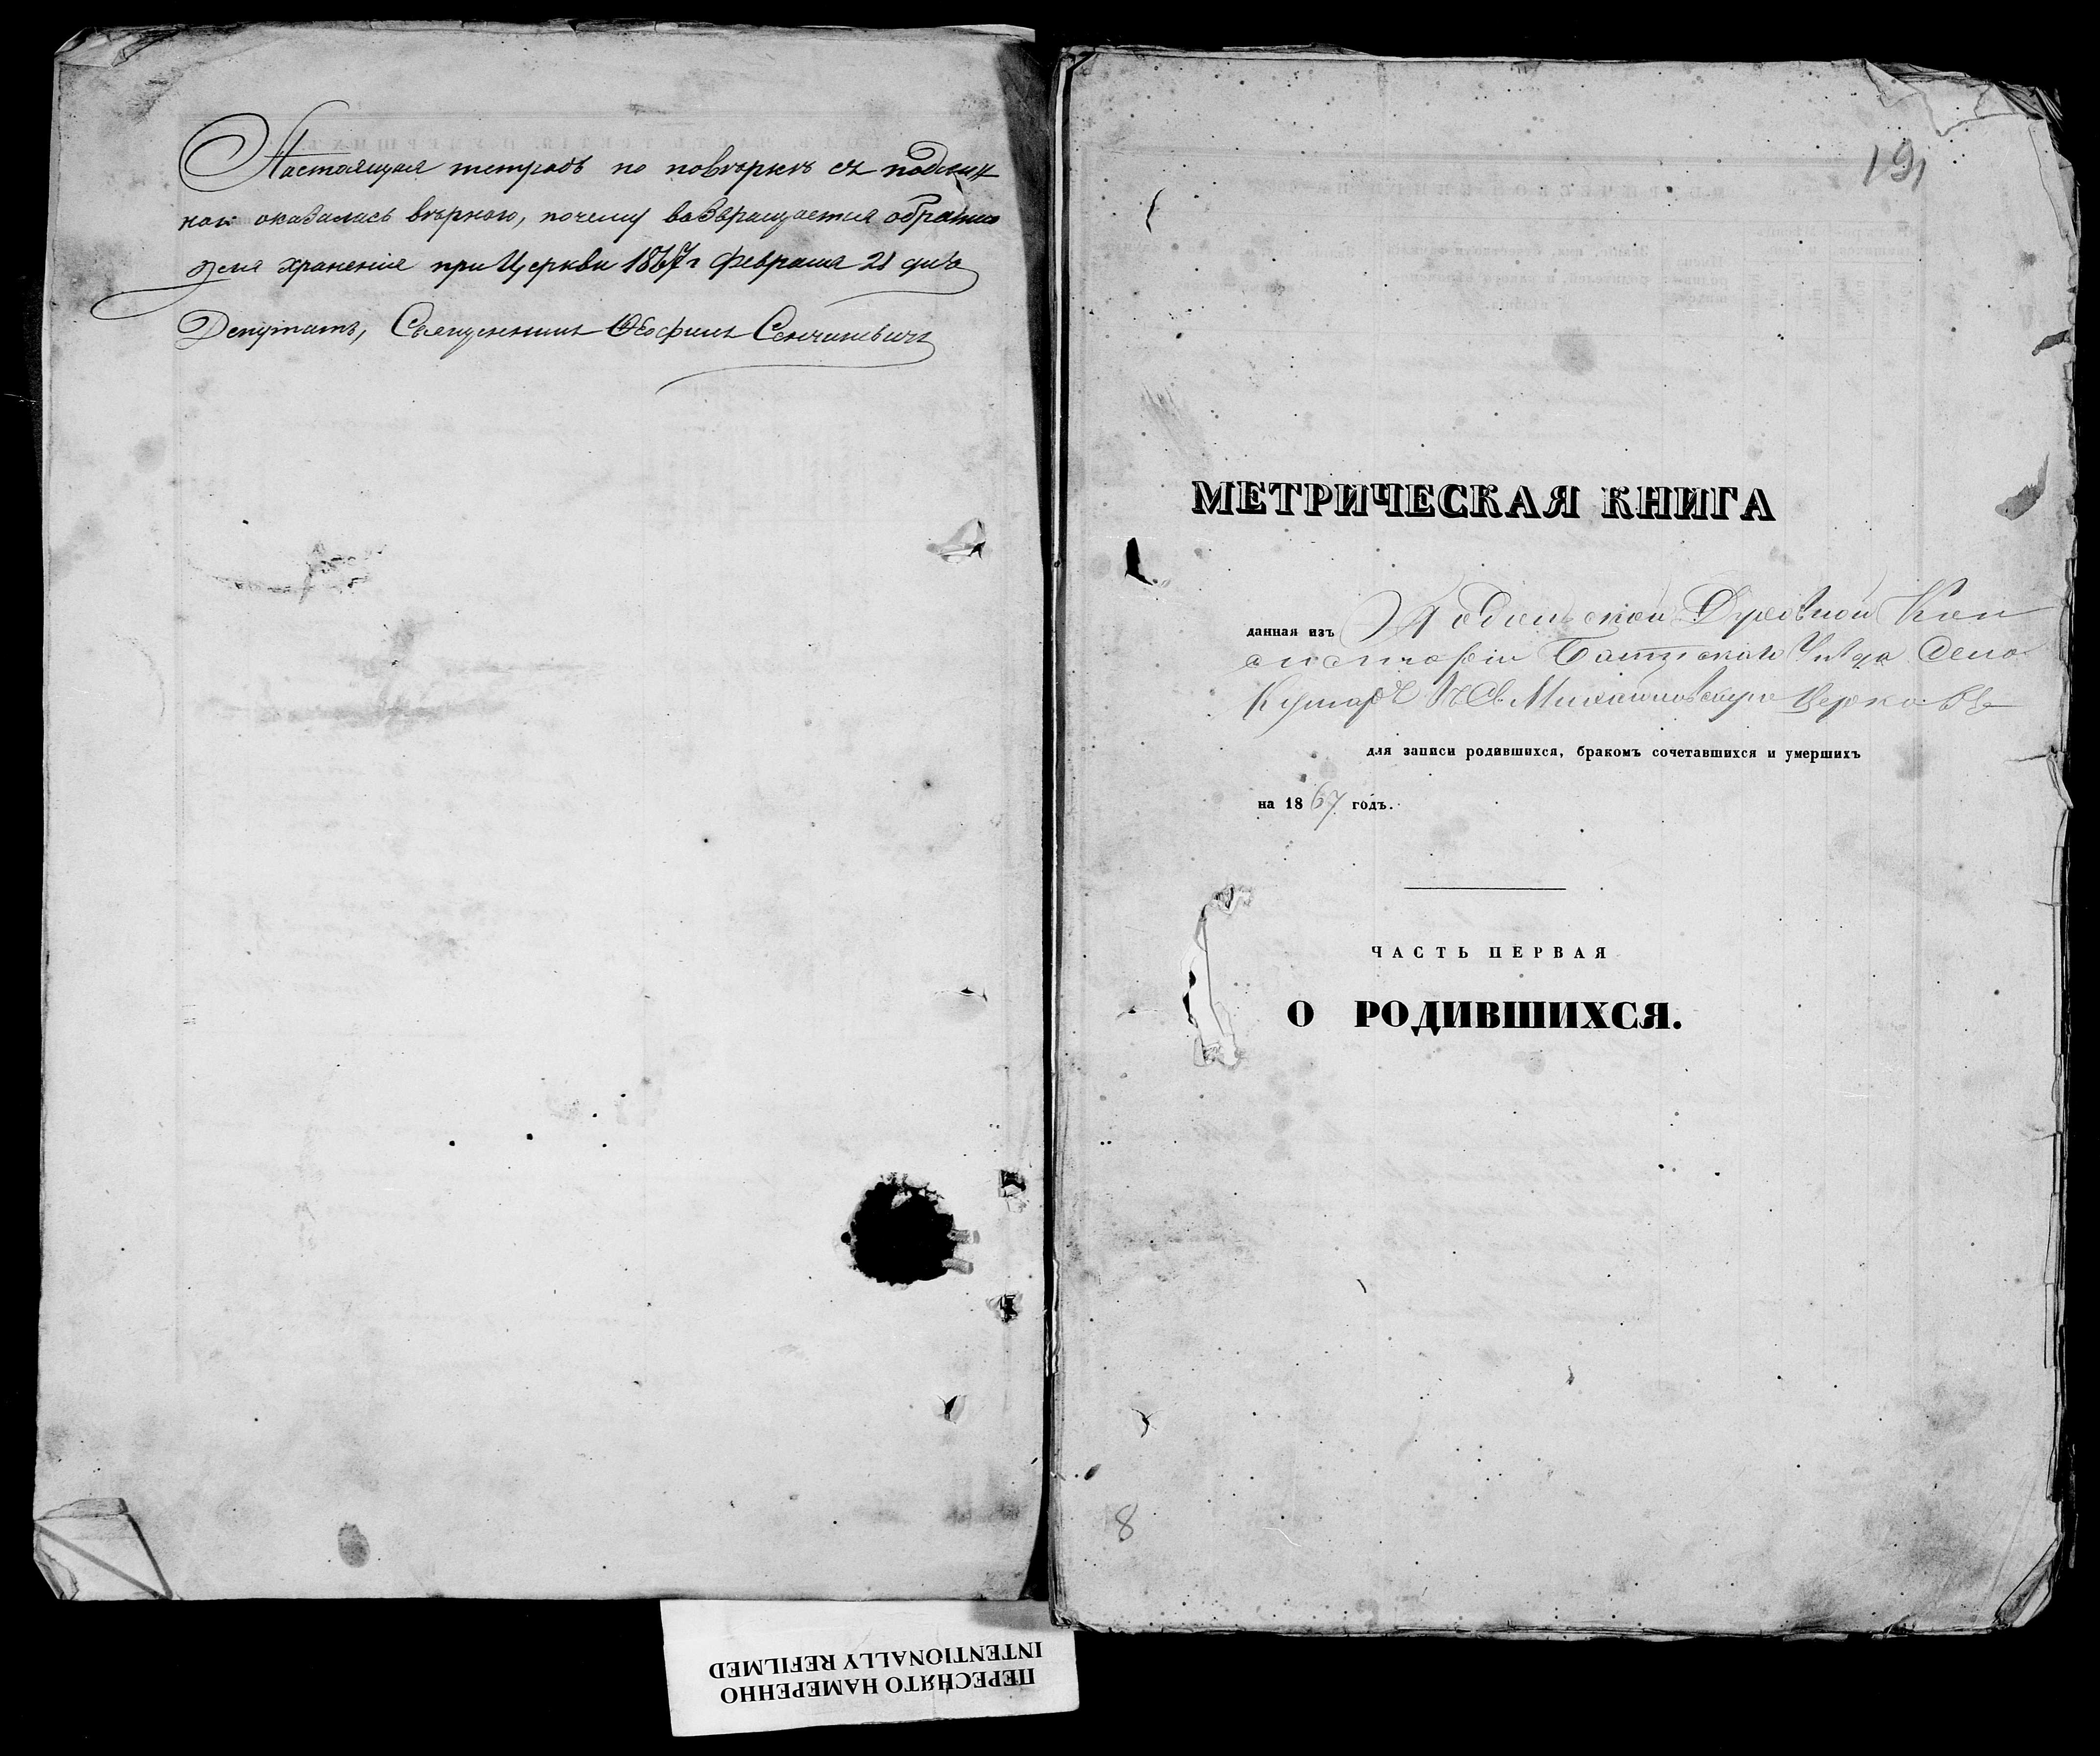 Настоящая тетрадь по повѣркѣ съ подлин
ною оказалась вѣрною, почему возвращается обратно
для храненія при Церкви 1867 г Февраля 21 дня
Депутатъ, Священникъ Ѳеофилъ Сенчикевичъ
191
МЕТРИЧЕСКАЯ КНИГА
данная изъ Подольской Духовной Кон
систоріи Балтскаго Уѣзда Села
въ Св. Михайловскую Церковь
для записи родившихся, бракомъ сочетавшихся и умершихъ
на 1867 годъ.
ЧАСТЬ ПЕРВАЯ
О РОДИВШИХСЯ.
8
ПЕРЕСНЯТО НАМЕРЕННО
INTENTIONALLY REFILMED